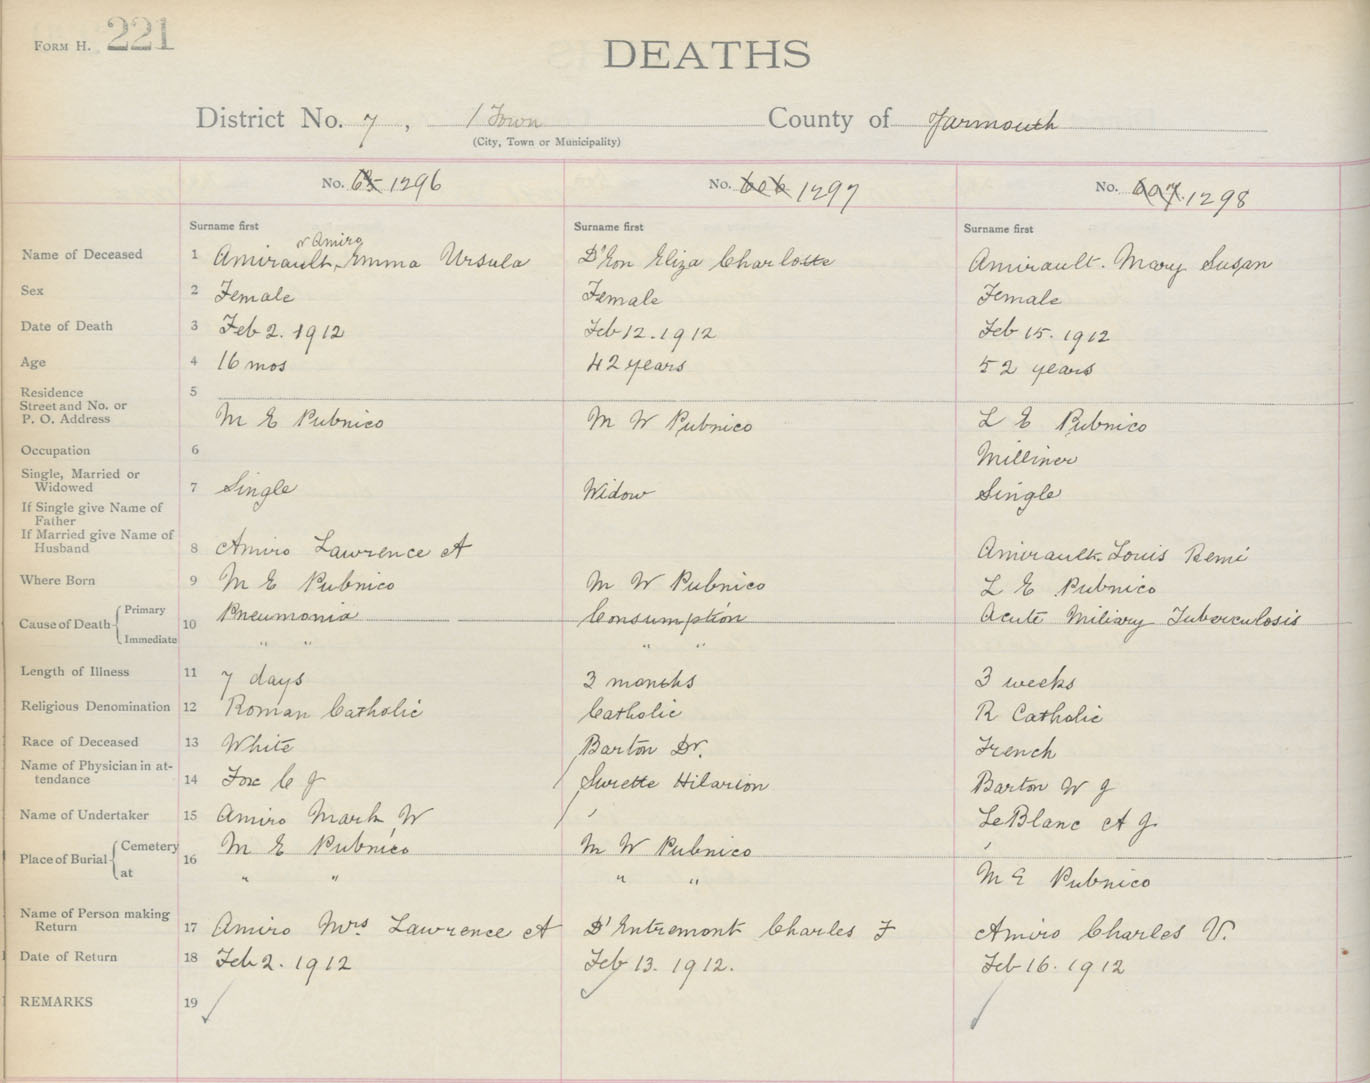 FORM H. 221
DEATHS
District No. 7, 1 Town County of Yarmouth
(City, Town or Municipality)
No. 1296 No. 606 1297 No. 607 1298
Surname first Surname first Surname first
or Amiro
Name of Deceased 1 Amirault, Emma Ursula D'Eon Eliza Charlotte Amirault. Mary Susan
Sex 2 Female Female Female
Date of Death 3 Feb 2. 1912 Feb 12. 1912 Feb 15. 1912
Age 4 16 mos 42 years 52 years
Residence 5
Street and No. or
P. O. Address M E Pubnico M W Pubnico L E Pubnico
Occupation 6 Milliner
Single, Married or
Widowed 7 Single Widow Single
If Single give Name of
Father
If Married give Name of
Husband 8 Amiro Lawrence A Amirault Louis Remi
Where Born 9 M E Pubnico M W Pubnico L E Pubnico
Cause of Death Primary 10 Pneumonia Consumption Acute Miliary Tuberculosis
Immediate " " " "
Length of Illness 11 7 days 3 months 3 weeks
Religious Denomination 12 Roman Catholic Catholic R Catholic
Race of Deceased 13 White Barton Dr. French
Name of Physician in at-
tendance 14 Fox C J Surette Hilarion Barton W J
Name of Undertaker 15 Amiro Mark W LeBlanc A J
Place of Burial Cemetery 16 M E Pubnico M W Pubnico
at " " " " M E Pubnico
Name of Person making
Return 17 Amiro Mrs Lawrence A D'Entremont Charles F Amiro Charles V.
Date of Return 18 Feb 2. 1912 Feb 13. 1912. Feb 16. 1912
REMARKS 19